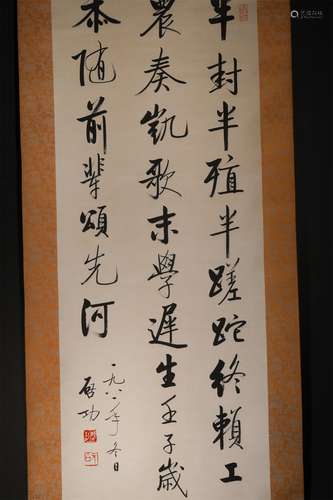 半封半殖半蹉跎終賴工
農奏凱歌末學遲生壬子歲
忝随前輩頌先河
一九八年冬日
啓功